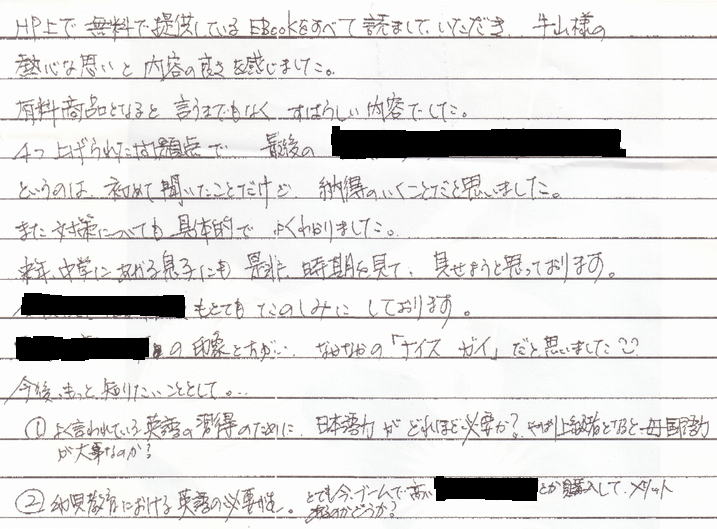 HP上で 無料で提供しているEBookをすべて読ましていただき、牛山様の
熱心な思いと内容の良さを感じました。
有料商品となると言うまでもなく すばらしい内容でした。
4つ上げられた問題点で 最後の
というのは、初めて聞いたことだけど、納得のいくことだと思いました。
また対策についても具体的で よくわかりました。
来年、中学にあがる息子にも 是非、時期を見て、見せようと思っております。
もとても たのしみに しております。
の印象と ちがい、なかなかの「ナイス ガイ」だと思いました
今後、もっと、知りたいこととして。。。
① よく言われている 英語の習得のために、日本語力が どれほど必要か? やはり上級者となると母国語力
が大事なのか?
② 幼児教育における英語の必要性。とても今、ブームで、高い とか購入して、メリット
あるのかどうか?